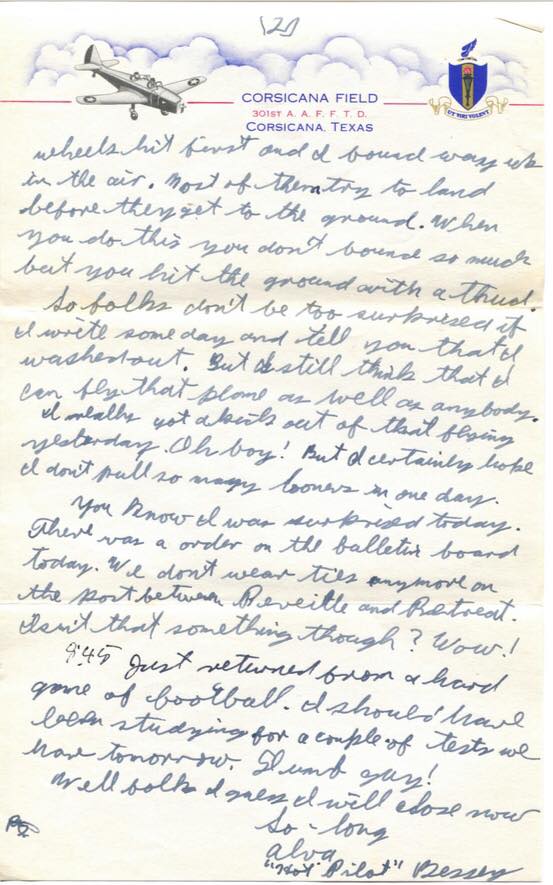 (2)
CORSICANA FIELD
301ST A. A. F. F. T. D.
CORSICANA, TEXAS
UT VIRI VOLENT
wheels hit first and I bound way up
in the air. Most of them try to land
before they get to the ground. When
you do this you don't bound so much
but you hit the ground with a thud.
So folks don't be too surprised if
I write some day and tell you that I
washed out. But I still think that I
can fly that plane as well as anybody.
I really got a kick out of that flying
yesterday. Oh boy! But I certainly hope
I don't pull so many boners in one day.
You know I was surprised today.
There was a order on the bulletin board
today. We don't wear ties anymore on
the post between Reveille and Retreat.
Isn't that something though? Wow!
9:45 Just returned from a hard
game of football. I should have
been studying for a couple of tests we
have tomorrow. Dumb guy!
Well folks I guess I will close now
So-long
Alva
"Hot Pilot" Bessey